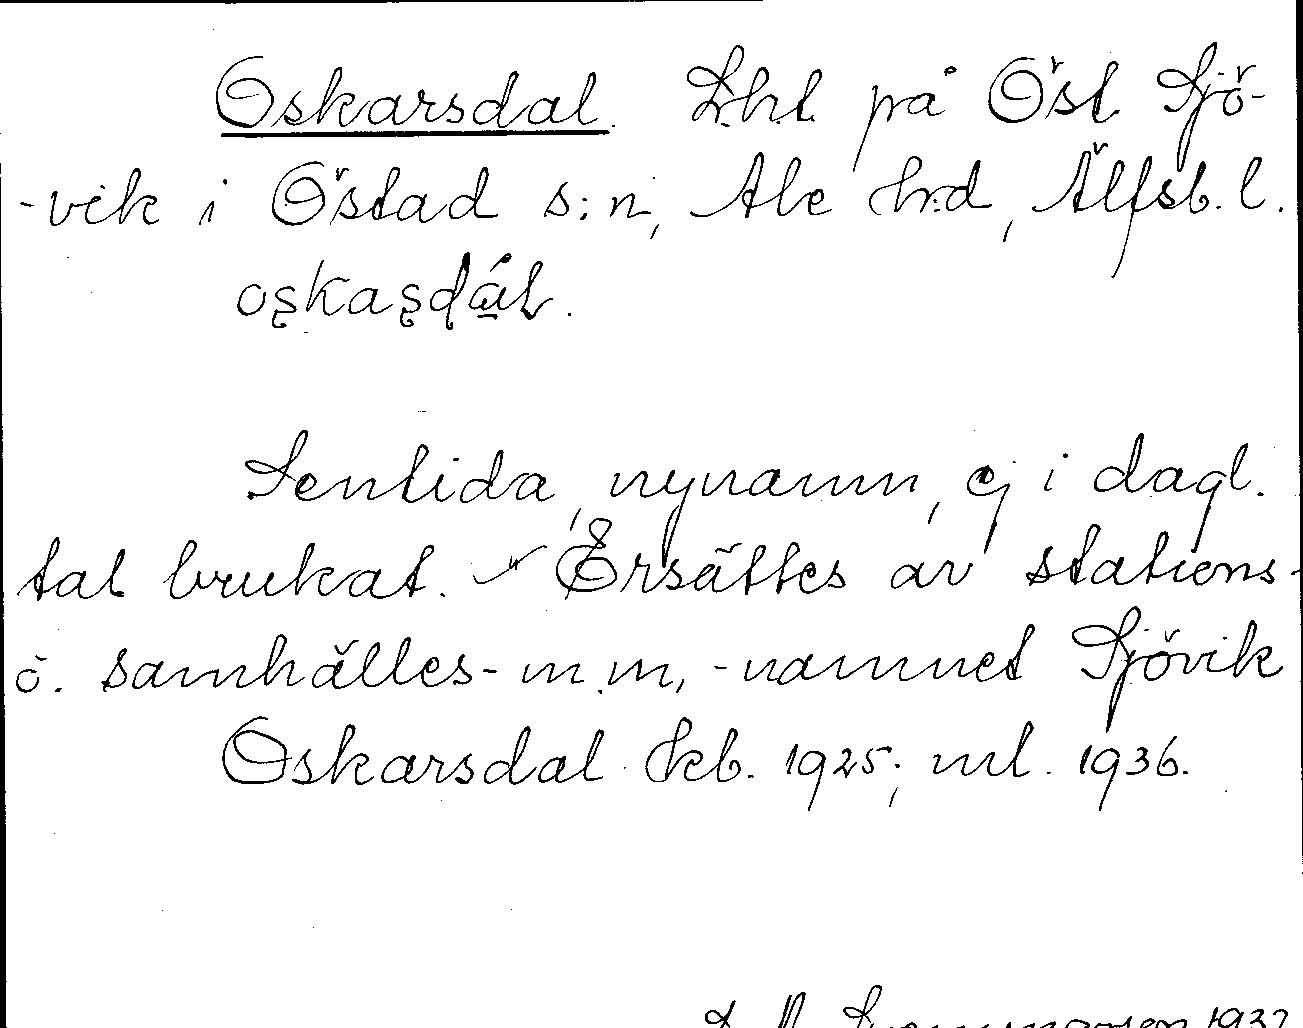 Oskarsdal. Lhl. på Öst. Sjö-
-vik i Östad s:n, Ale h:d, Älfsb. l.
oskasdál.
Sentida, nynamn, ej i dagl.
tal brukat. Ersättes av stations-
o. samhälles- m.m, -namnet Sjövik
Oskarsdal Jkb. 1925; ml. 1936.
1937